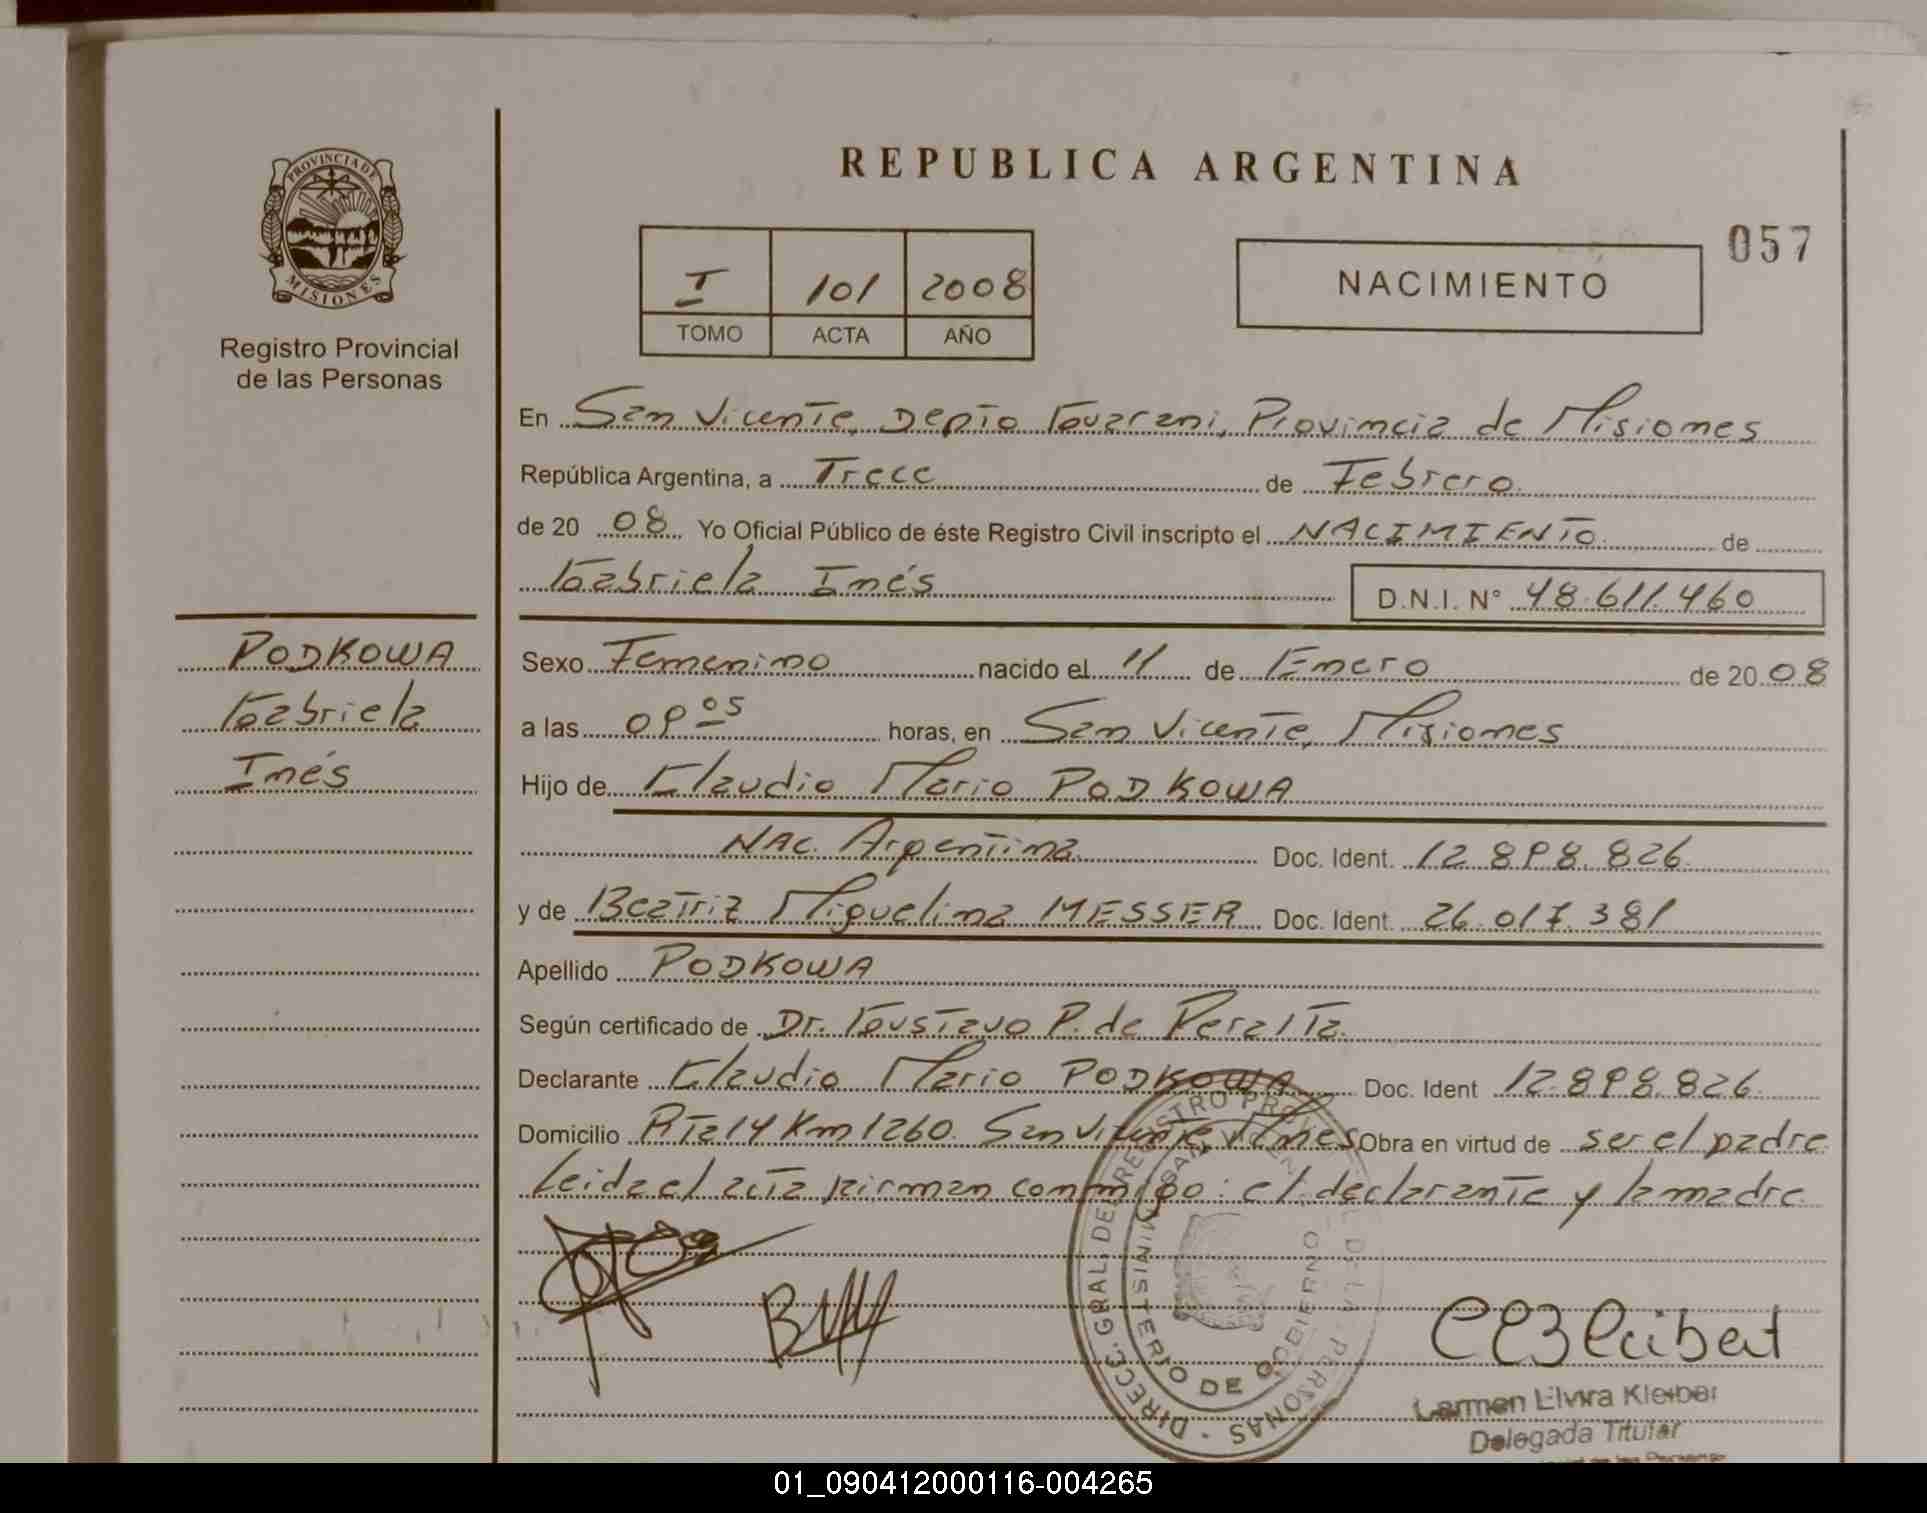 REPUBLICA ARGENTINA
057
PROVINCIA DE
MISIONES
Registro Provincial
de las Personas
I 101 2008
TOMO ACTA AÑO
NACIMIENTO
En San Vicente, Depto Guarani, Provincia de Misiones
República Argentina, a Trece de Febrero
de 20 08 Yo Oficial Público de éste Registro Civil inscripto el NACIMIENTO de
Gabriela Inés D.N.I. N° 48.611.460
PODKOWA
Gabriela
Inés
Sexo Femenino nacido el 11 de Enero de 20 08
a las 09 05 horas, en San Vicente, Misiones
Hijo de Claudio Mario PODKOWA
NAC. Argentina Doc. Ident. 12.898.826
y de Beatriz Miguelina MESSER Doc. Ident. 26.017.381
Apellido PODKOWA
Según certificado de Dr. Gustavo P. de Peralta
Declarante Claudio Mario PODKOWA Doc. Ident 12.898.826
Domicilio Rta 14 Km 1260. San Vicente, Mnes Obra en virtud de ser el padre
Leida el acta firman conmigo: el declarante y la madre
DIRECC. GRAL. DEL REGISTRO PERSONAS
MINISTERIO DE GOBIERNO
Carmen Elvira Kleiber
Delegada Titular
01_090412000116-004265